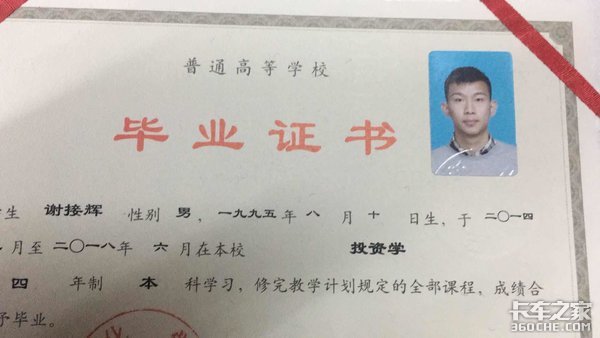 普通高等学校
毕业证书
生 谢接辉 性别 男，一九九五年 八 月 十 日生，于 二〇一四
月至 二〇一八年 六 月在本校 投资学
四 年制 本 科学习，修完教学计划规定的全部课程，成绩合
予毕业。
卡车之家
360CHE.COM